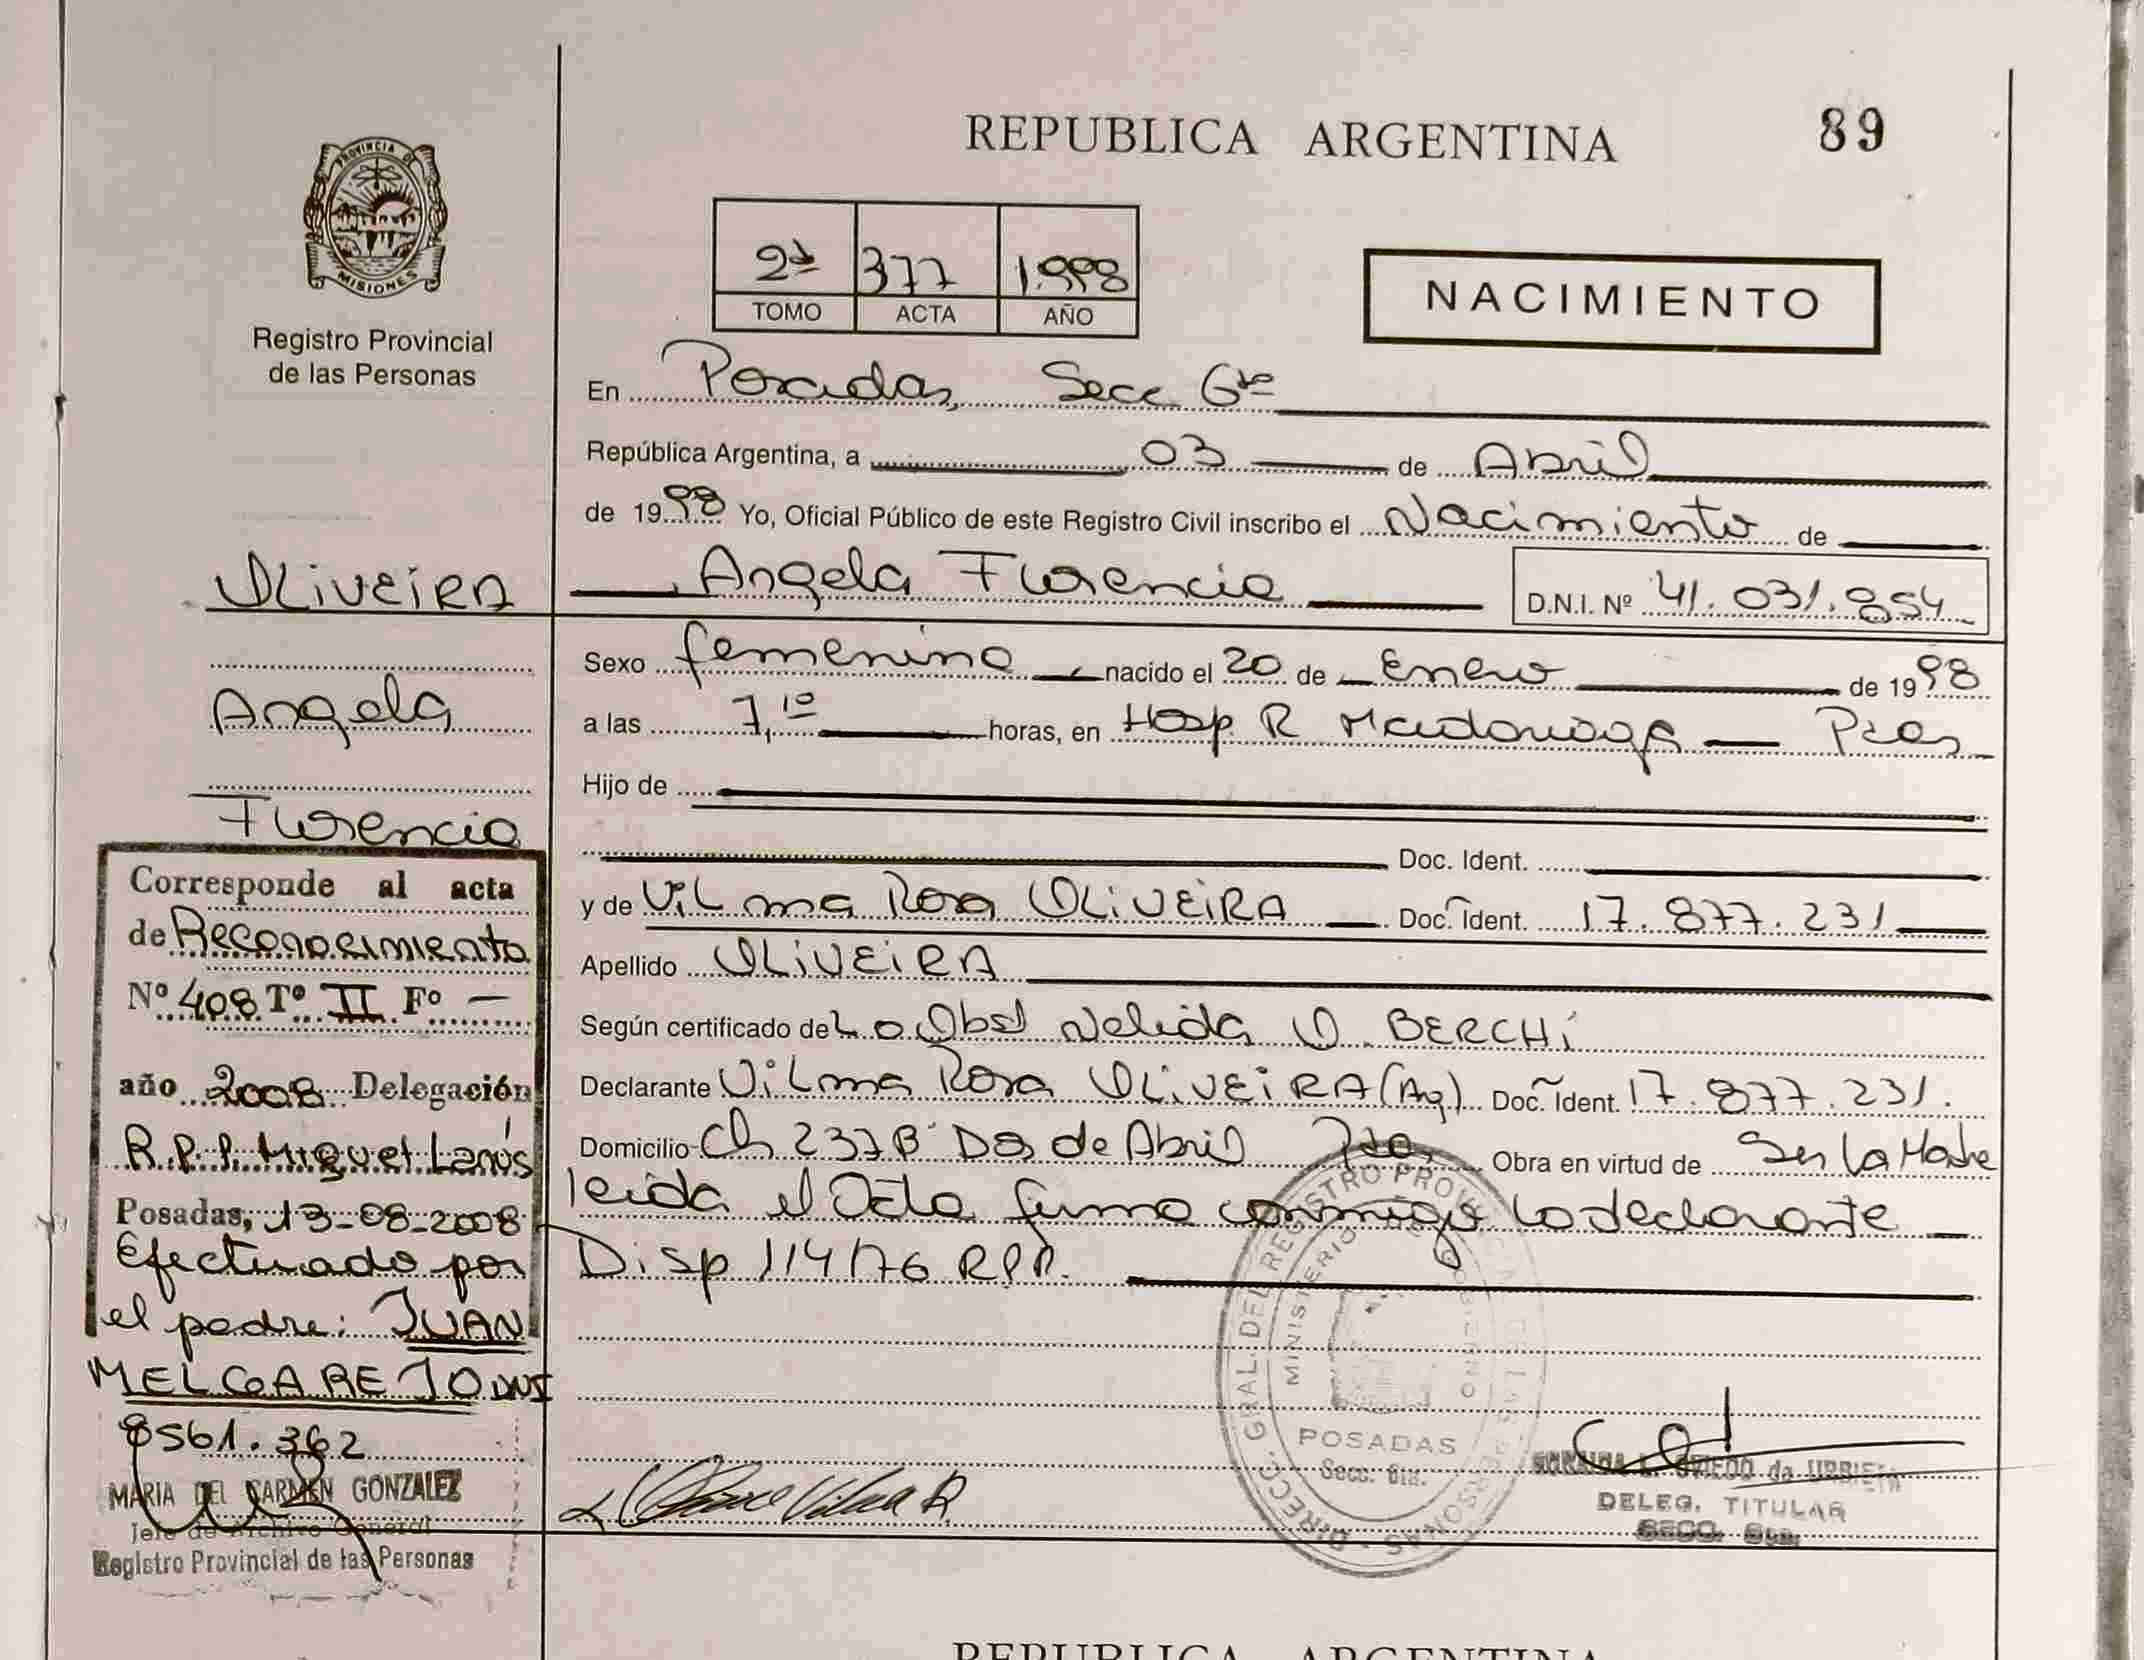 REPUBLICA ARGENTINA
89
PROVINCIA DE
MISIONES
Registro Provincial
de las Personas
2da 377 1.998
TOMO ACTA AÑO
NACIMIENTO
En Posadas, Secc 6ta
República Argentina, a 03 de Abril
de 1998 Yo, Oficial Público de este Registro Civil inscribo el Nacimiento de
Angela Florencia D.N.I. Nº 41.031.854
Sexo femenino nacido el 20 de Enero de 1998
a las 7,10 horas, en Hosp. R Madariaga Pdas
Hijo de
Doc. Ident.
y de Vilma Rosa OLIVEIRA Doc. Ident. 17.877.231
Apellido OLIVEIRA
Según certificado de La Obst Nelida O. BERCHi
Declarante Vilma Rosa OLIVEIRA (Ag) Doc. Ident. 17.877.231.
Domicilio Ch 237 B Dos de Abril Pdas Obra en virtud de Ser La Madre
leida el Acta firma conmigo la declarante
Disp 114/76 RPP.
OLIVEIRA
Angela
Florencia
Corresponde al acta
de Reconocimiento
Nº 408 Tº II Fº —
año 2008 Delegación
R.P.P. Miguel Lanús
Posadas, 13-08-2008
Efectuado por
el padre: JUAN
MELGAREJO DNI
8561.362
MARIA DEL CARMEN GONZALEZ
Jefe de Archivo General
Registro Provincial de las Personas
DIRECC. GRAL. DEL REGISTRO PROVINCIAL DE LAS PERSONAS
MINISTERIO DE GOBIERNO
POSADAS
Secc. 6ta.
OVIEDO de URBIETA
DELEG. TITULAR
SECC. 6ta.
REPUBLICA ARGENTINA